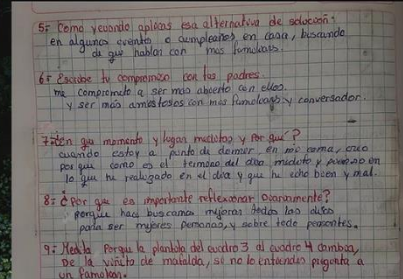 5: Como y cuando aplicas esa alternativa de solución:
en algunos evento o cumpleaños en casa, buscando
de que hablar con mis familiares.
6: Escribe tu compromiso con tus padres.
me comprometo a ser más abierto con ellos.
y ser más amistosos con mis familiares y conversador.
7: ¿En que momento y lugar meditas y por que?
cuando estoy a punto de dormir, en mi cama, creo
por que como es el termino del dia, medito y pienso en
lo que he realizado en el dia y que he echo bien y mal.
8: ¿Por que es importante reflexionar Diariamente?
porque haci buscamos mejorar todos los dias
para ser mejores personas, y sobre todo pensantes.
9: Medita Porque la plantita del cuadro 3 al cuadro 4 cambia,
De la viñeta de mafalda, si no lo entiendes pregunta a
un familiar.